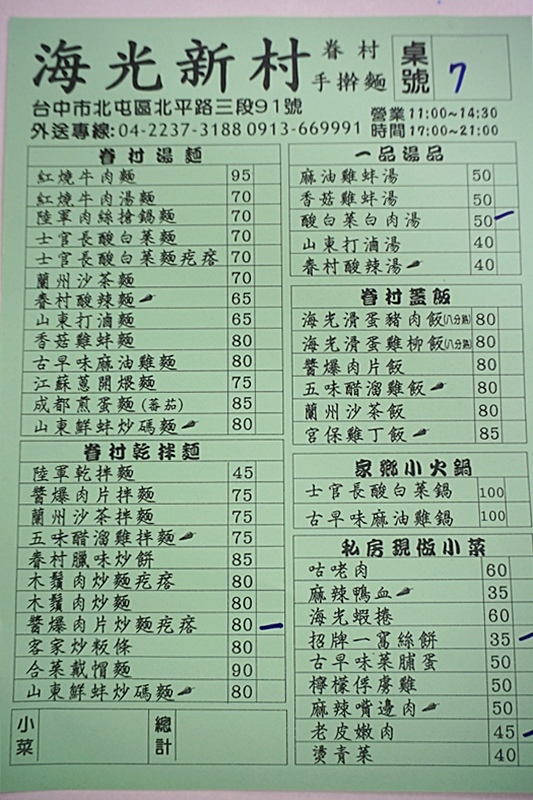 海光新村
眷村
手擀麵
桌號 7
台中市北屯區北平路三段91號
外送專線:04-2237-3188 0913-669991
營業時間 11:00~14:30
17:00~21:00
眷村湯麵
紅燒牛肉麵 95
紅燒牛肉湯麵 70
陸軍肉絲搶鍋麵 70
士官長酸白菜麵 70
士官長酸白菜麵疙瘩 70
蘭州沙茶麵 70
眷村酸辣麵 65
山東打滷麵 65
香菇雞蚌麵 80
古早味麻油雞麵 80
江蘇蔥開煨麵 75
成都煎蛋麵(蕃茄) 85
山東鮮蚌炒碼麵 80
眷村乾拌麵
陸軍乾拌麵 45
醬爆肉片拌麵 75
蘭州沙茶拌麵 75
五味醋溜雞拌麵 75
眷村臘味炒餅 85
木鬚肉炒麵疙瘩 80
木鬚肉炒麵 80
醬爆肉片炒麵疙瘩 80
客家炒粄條 80
合菜戴帽麵 90
山東鮮蚌炒碼麵 80
小菜
總計
一品湯品
麻油雞蚌湯 50
香菇雞蚌湯 50
酸白菜白肉湯 50
山東打滷湯 40
眷村酸辣湯 40
眷村蓋飯
海光滑蛋豬肉飯(八分熟) 80
海光滑蛋雞柳飯(八分熟) 80
醬爆肉片飯 80
五味醋溜雞飯 80
蘭州沙茶飯 80
宮保雞丁飯 85
家鄉小火鍋
士官長酸白菜鍋 100
古早味麻油雞鍋 100
私房現做小菜
咕咾肉 60
麻辣鴨血 35
海光蝦捲 60
招牌一窩絲餅 35
古早味菜脯蛋 50
檸檬俘虜雞 50
麻辣嘴邊肉 50
老皮嫩肉 45
燙青菜 40